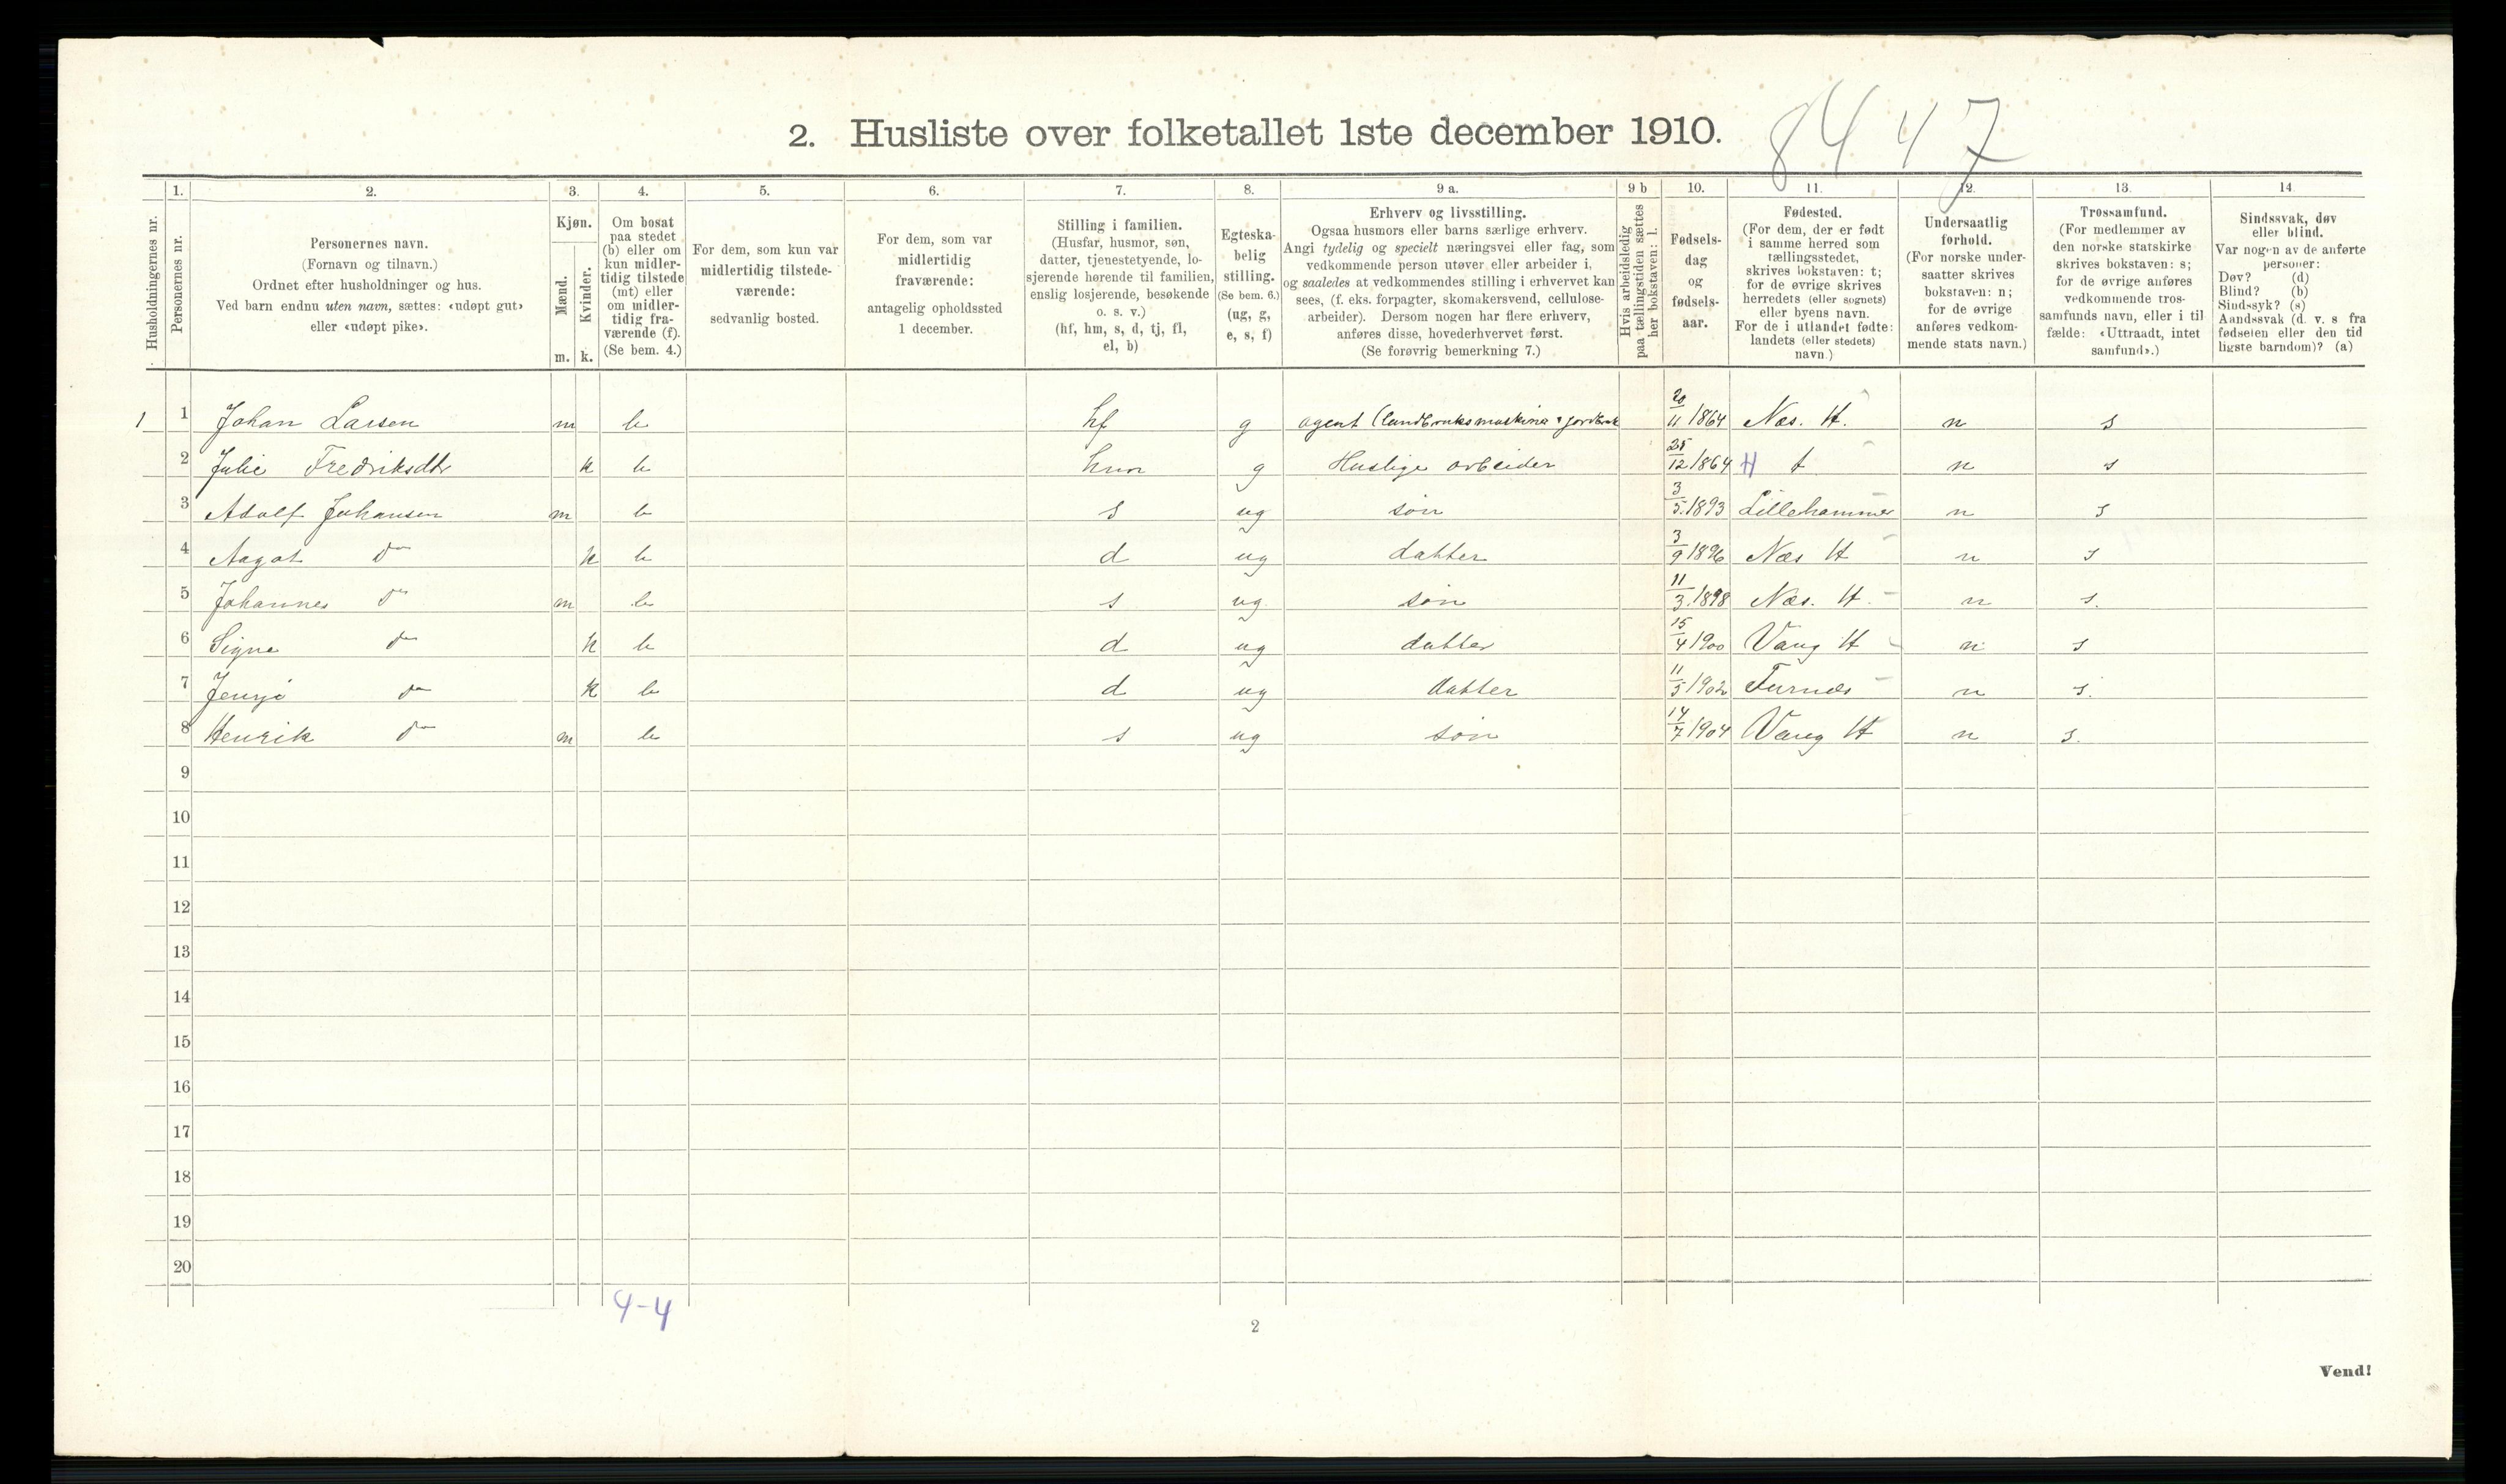 8447
2. Husliste over folketallet 1ste december 1910.
Husholdningernes nr.
1.
Personernes nr.
2.
Personernes navn.
(Fornavn og tilnavn.)
Ordnet efter husholdninger og hus.
Ved barn endnu uten navn, sættes: «udøpt gut»
eller «udøpt pike».
3.
Kjøn.
Mænd.
Kvinder.
m. k.
4.
Om bosat
paa stedet
(b) eller om
kun midler-
tidig tilstede
(mt) eller
om midler-
tidig fra-
værende (f).
(Se bem. 4.)
5.
For dem, som kun var
midlertidig tilstede-
værende:
sedvanlig bosted.
6.
For dem, som var
midlertidig
fraværende:
antagelig opholdssted
1 december.
7.
Stilling i familien.
(Husfar, husmor, søn,
datter, tjenestetyende, lo-
sjerende hørende til familien,
enslig losjerende, besøkende
o. s. v.)
(hf, hm, s, d, tj, fl,
el, b)
8.
Egteska-
belig
stilling.
(Se bem. 6.)
(ug, g,
e, s, f)
9 a.
Erhverv og livsstilling.
Ogsaa husmors eller barns særlige erhverv.
Angi tydelig og specielt næringsvei eller fag, som
vedkommende person utøver eller arbeider i,
og saaledes at vedkommendes stilling i erhvervet kan
sees, (f. eks. forpagter, skomakersvend, cellulose-
arbeider). Dersom nogen har flere erhverv,
anføres disse, hovederhvervet først.
(Se forøvrig bemerkning 7.)
9 b
Hvis arbeidsledig
paa tællingstiden sættes
her bokstaven: l.
10.
Fødsels-
dag
og
fødsels-
aar.
11.
Fødested.
(For dem, der er født
i samme herred som
tællingsstedet,
skrives bokstaven: t;
for de øvrige skrives
herredets (eller sognets)
eller byens navn.
For de i utlandet fødte:
landets (eller stedets)
navn.)
12.
Undersaatlig
forhold.
(For norske under-
saatter skrives
bokstaven: n;
for de øvrige
anføres vedkom-
mende stats navn.)
13.
Trossamfund.
(For medlemmer av
den norske statskirke
skrives bokstaven: s;
for de øvrige anføres
vedkommende tros-
samfunds navn, eller i til
fælde: «Uttraadt, intet
samfund».)
14
Sindssvak, døv
eller blind.
Var nogen av de anførte
personer:
Døv? (d)
Blind? (b)
Sindssyk? (s)
Aandssvak (d. v. s fra
fødselen eller den tid
ligste barndom)? (a)
1 1 Johan Larsen m b hf g agent (landbruksmaskiner + jordbruk 20/11 1864 Næs. H. n s
2 Julie Fredriksdtr k b hm g Huslige arbeider 25/12 1864 H t n s
3 Adolf Johansen m b s ug søn 3/5 1893 Lillehammer n s
4 Aagot do k b d ug datter 3/9 1896 Næs H n s
5 Johannes do m b s ug søn 11/3 1898 Næs. H. n s.
6 Signe do k b d ug datter 15/4 1900 Vang H n s
7 do k b d ug datter 11/5 1902 Furnæs n s.
8 Henrik do m b s ug søn 14/7 1904 Vang H n s.
9
10
11
12
13
14
15
16
17
18
19
20
4-4
2
Vend!